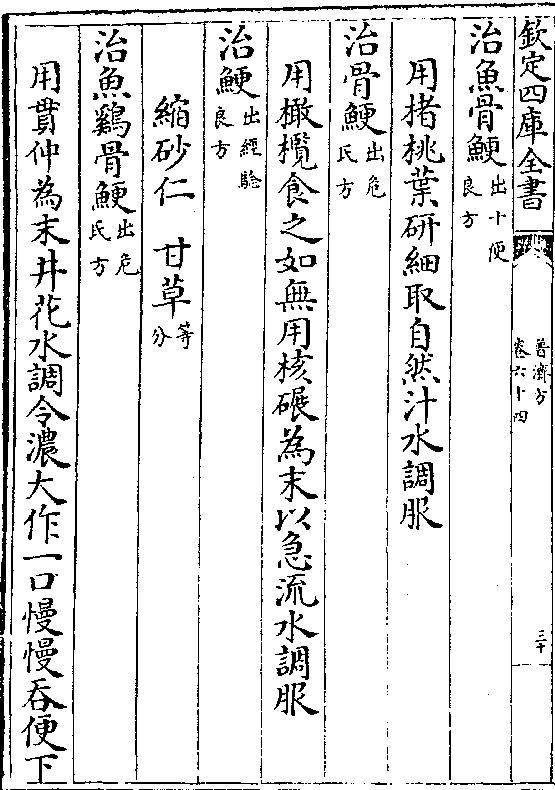 欽定四庫全書
普濟方
卷六十四
三十
治魚骨鯁出十便良方
用楮桃葉研細取自然汁水調服
治骨鯁出危氏方
用橄欖食之如無用核碾為末以急流水調服
治鯁出經驗良方
縮砂仁 甘草等分
治魚鷄骨鯁出危氏方
用貫仲為末井花水調令濃大作一口慢慢吞便下